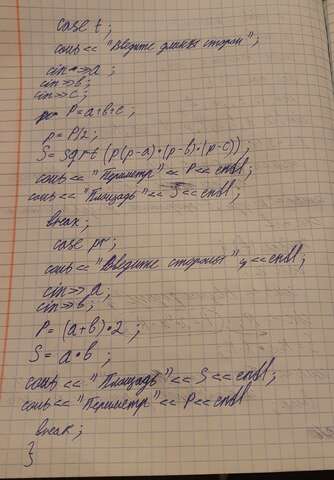 case t;
cout << "Введите длины сторон";
cin >> a;
cin >> b;
cin >> c;
P = a+b+c;
p = P/2;
S = sqrt (p(p-a)·(p-b)·(p-c));
cout << "Периметр" << P << endl;
cout << "Площадь" << S << endl;
break;
case pr;
cout << "Введите стороны" << endl;
cin >> a,
cin >> b;
P = (a+b)·2;
S = a·b;
cout << "Площадь" << S << endl;
cout << "Периметр" << P << endl
break;
}